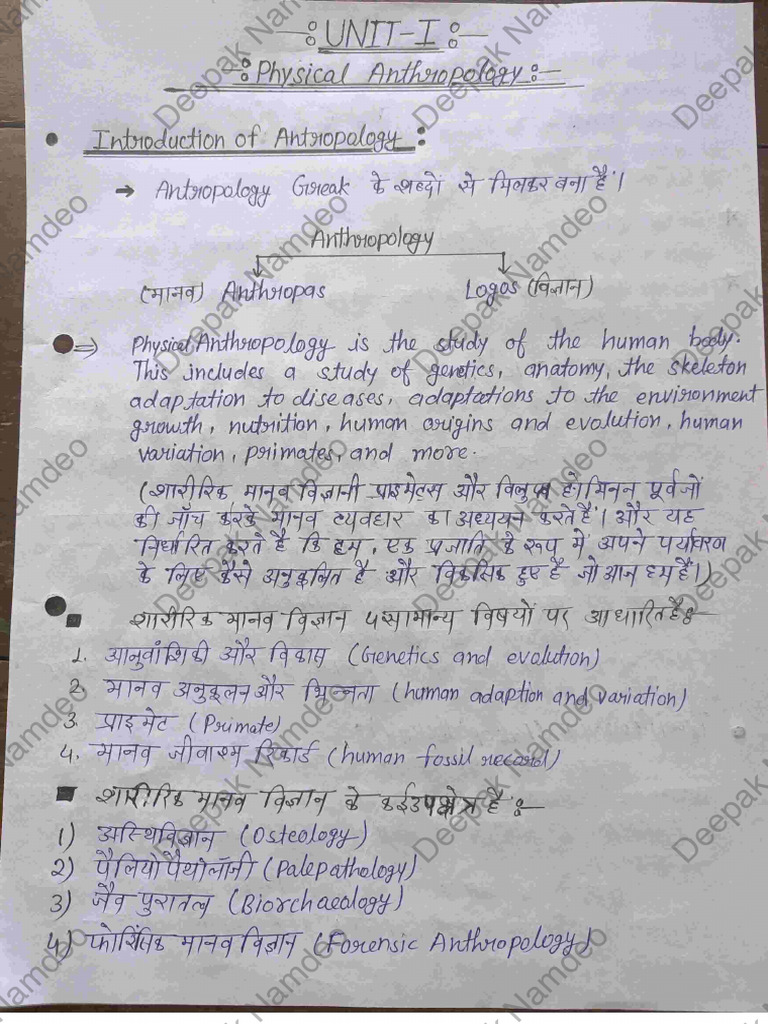 -: UNIT-I :-
-: Physical Anthropology :-
• Introduction of Antropalogy :
→ Antropalogy Greak के शब्दों से मिलकर बना है।
Anthropology
(मानव) Anthropas Logos (विज्ञान)
⇒ Physical Anthropology is the study of the human body.
This includes a study of genetics, anatomy, the skeleton
adaptation to diseases, adaptations to the environment
growth, nutrition, human origins and evolution, human
variation, primates, and more.
(शारीरिक मानव विज्ञानी प्राइमेट्स और विलुप्त होमिनिन पूर्वजों
की जाँच करके मानव व्यवहार का अध्ययन करते हैं। और यह
निर्धारित करते है कि हम, एक प्रजाति के रूप में अपने पर्यावरण
के लिए कैसे अनुकूलित है और विकसिक हुए है जो आज हम हैं।)
■ शारीरिक मानव विज्ञान 4 सामान्य विषयों पर आधारित है:-
1. आनुवांशिकी और विकास (Genetics and evolution)
2. मानव अनुकूलन और भिन्नता (human adaption and variation)
3. प्राइमेट (Primate)
4. मानव जीवाश्म रिकार्ड (human fossil record)
■ शारीरिक मानव विज्ञान के कई उपक्षेत्र है :-
1) अस्थिविज्ञान (Osteology)
2) पैलियोपैथोलॉजी (Palepathology)
3) जैव पुरातत्व (Biorchaeology)
4) फोरेंसिक मानव विज्ञान (Forensic Anthropology)
Deepak Namdeo